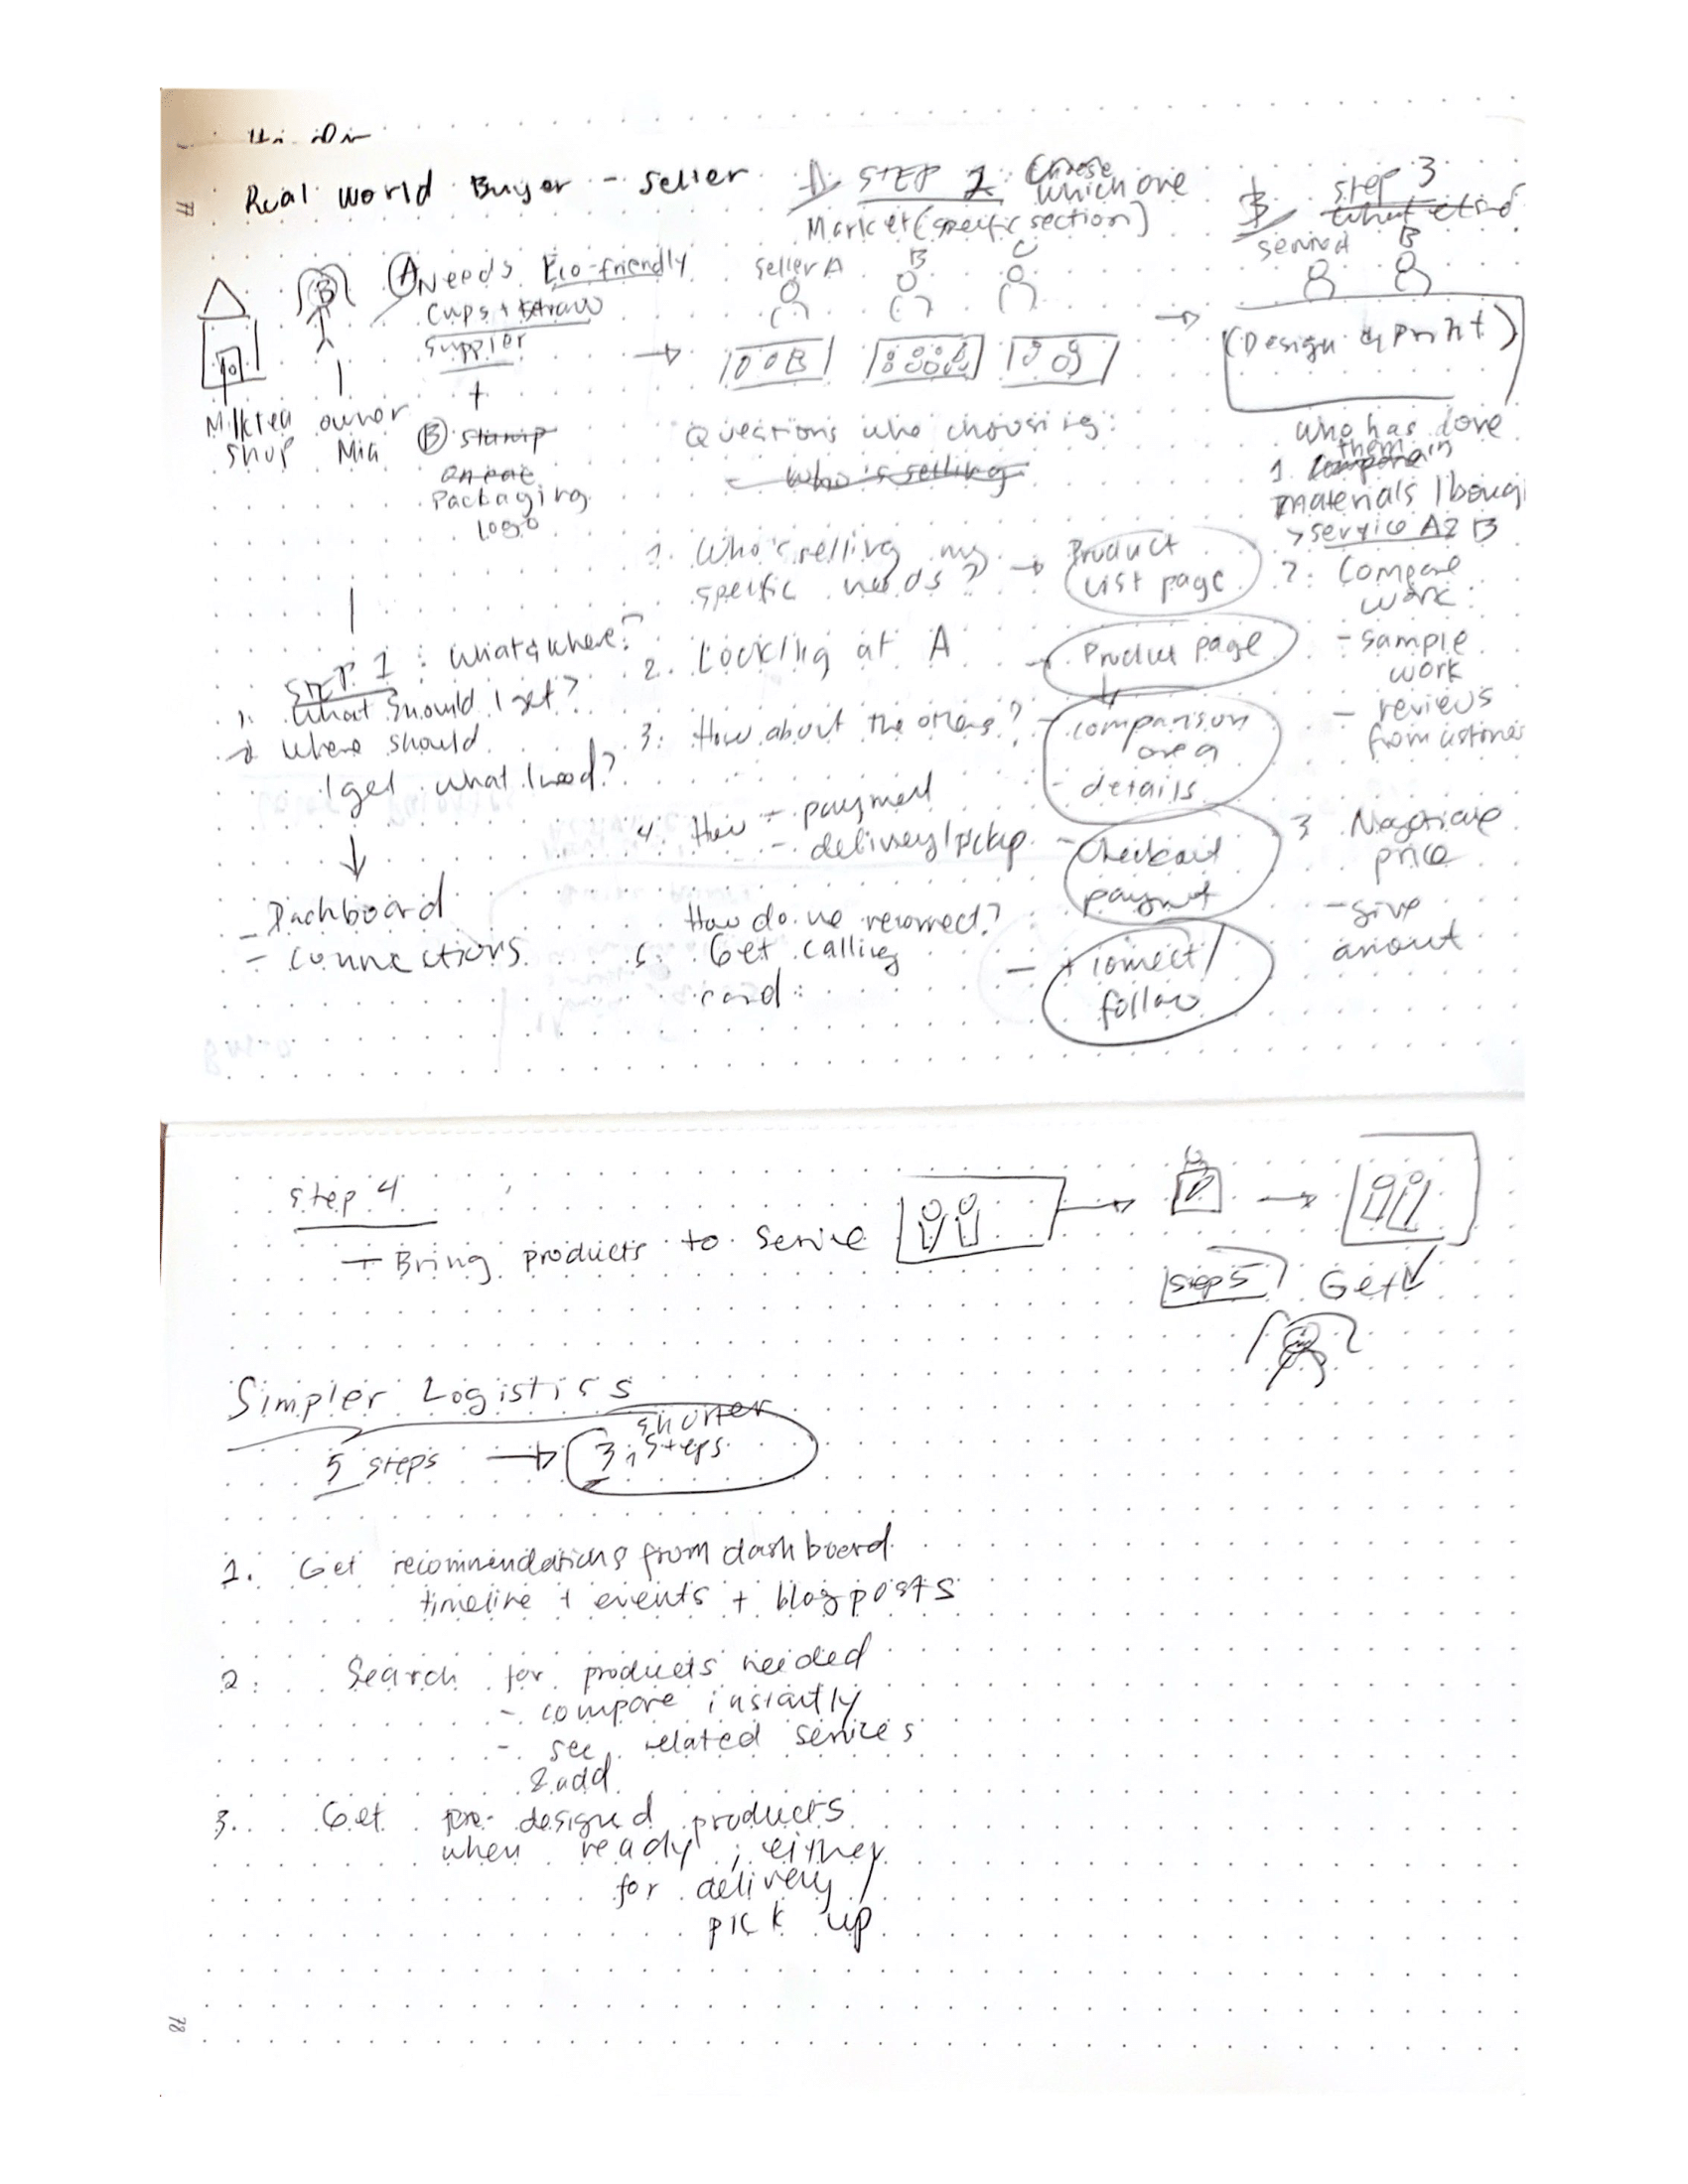 77
Real World Buyer - Seller
Milktea shop
owner Mia
B
A Needs Eco-friendly
cups + straw
supplier
+
B stamp
on eac
Packaging
logo
STEP 1: What & where?
1. What should I get?
2 where should
I get what I need?
- Dashboard
- connections
STEP 2: Choose
which one
Market (specific section)
Seller A
B
C
Questions who choosing:
- who's selling
1. Who's selling my
specific needs? → Product
List page
2. Looking at A
Product page
3. How about the others?
comparison
area
- details
4. How - payment
- delivery/pickup
Checkout
paymnt
How do we reconnect?
5. Get calling
card:
+ connect/
follow
Step 3
What
B
(Design & Print)
Who has done
them
1. in
materials I boug
> service A2 B
2. Compare
work:
- sample
work
- reviews
from customer
3 Negotiate
price
- give
amount
step 4
- Bring products to service
Step 5
Get
Simpler Logistics
5 steps → 3 shorter
steps
1. Get recommendations from dashboard
timeline + events + blog posts
2. Search for products needed
- compare instantly
- see related services
& add
3. Get pre-designed products
when ready; either
for delivery /
pick up
78